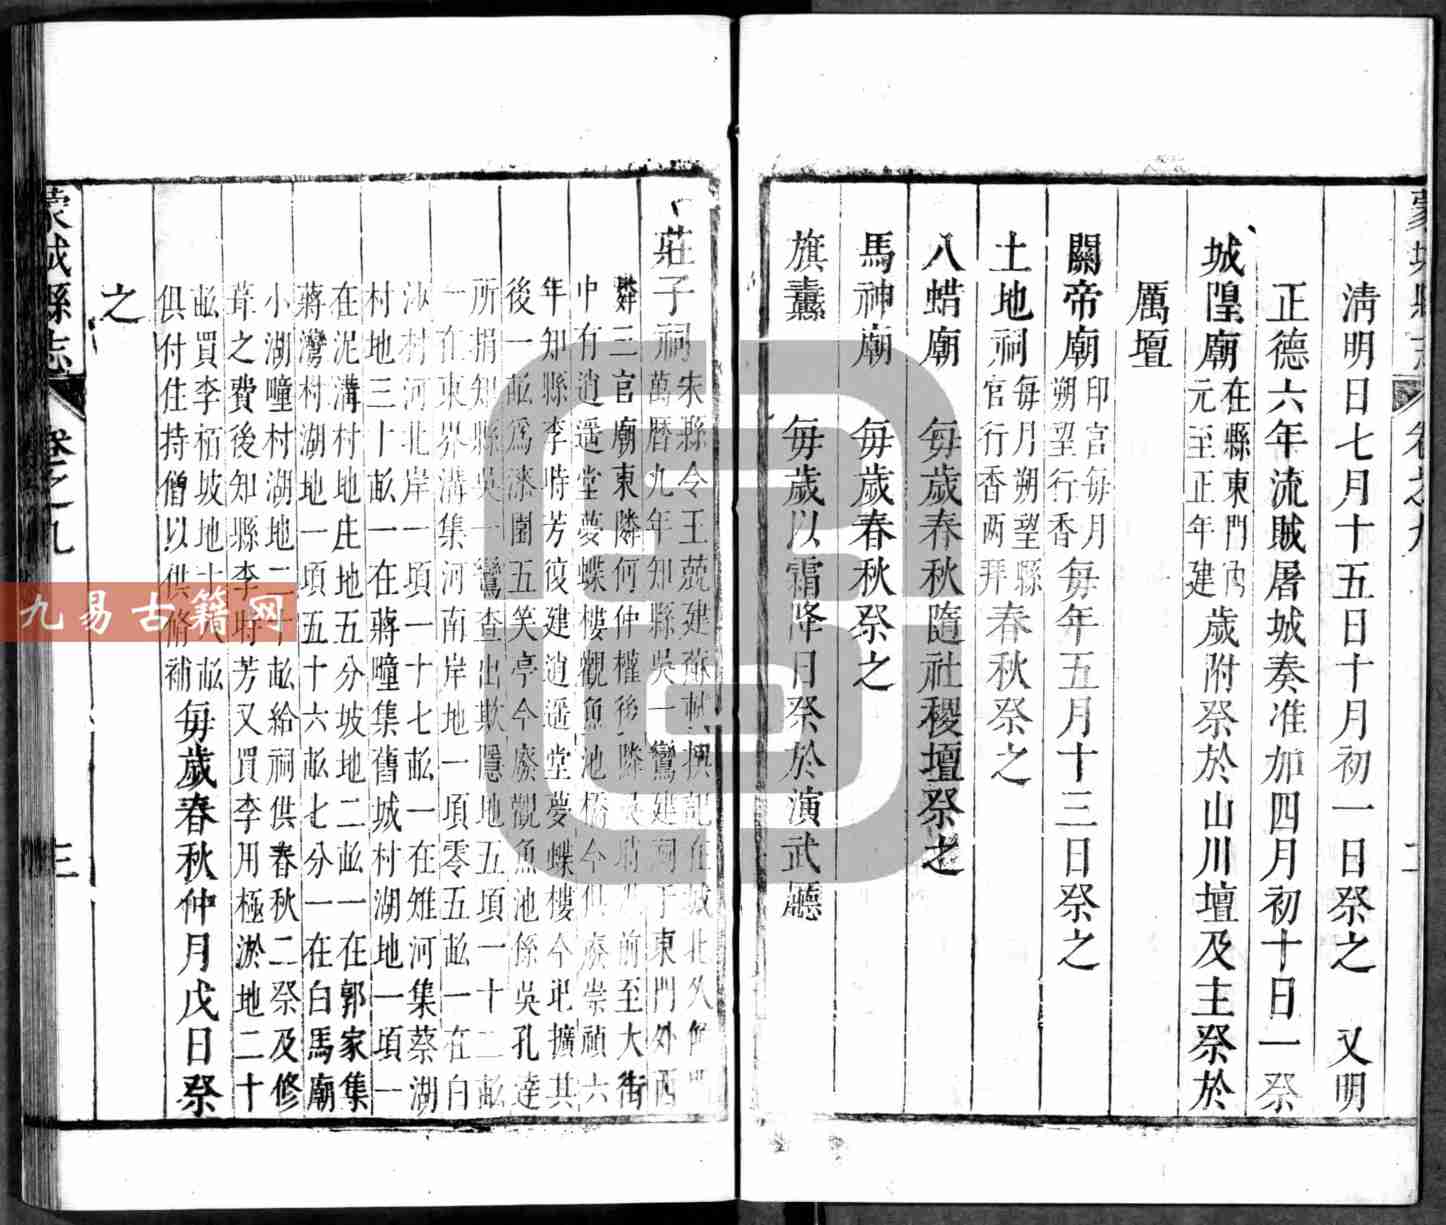 清明日七月十五日十月初一日祭之　又明
正德六年流賊屠城奏准加四月初十日一祭
城隍廟在縣東門內元至正年建歲附祭於山川壇及主祭於
厲壇
關帝廟印官每月朔望行香每年五月十三日祭之
土地祠每月朔望縣官行香两拜春秋祭之
八蜡廟　每歲春秋隨社稷壇祭之
馬神廟　每歲春秋祭之
旗纛　每歲以霜降日祭於演武廳
莊子祠朱縣令王兢建撰記在城北久萬曆九年知縣吳一鸞建祠于東門外西
隣三官廟東隣何仲權後隣前至大街
中有逍遥堂夢蝶樓觀魚池橋今俱廢崇禎六
年知縣李時芳復建逍遥堂夢蝶樓今圯擴其
後一畝爲漆園五笑亭今廢觀魚池係吳孔達
所捐知縣吳一鸞查出欺隱地五項一十二畝
一在東界溝集河南岸地一項零五畝一在白
村河北岸一項一十七畝一在雉河集蔡湖
村地三十畝一在蔣疃集舊城村湖地一項一
在泥溝村地庄地五分坡地二畝一在郭家集
蔣灣村湖地一項五十六畝七分一在白馬廟
小湖疃村湖地二十畝給祠供春秋二祭及修
葺之費後知縣李時芳又買李用極淤地二十
畝買李栢坡地十畝
俱付住持僧以供脩補每歲春秋仲月戊日祭
之
蒙城縣志
卷之九
三
九易古籍网